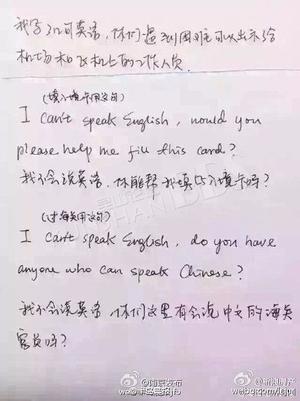 我写了几句英语，你们遇到困难可以出示给
机场和飞机上的工作人员.
(填入境卡用这句)
I can't speak English, would you
please help me fill this card?
我不会说英语，你能帮我填写入境卡吗?
(过海关用这句)
I can't speak English, do you have
anyone who can speak Chinese?
我不会说英语，你们这里有会说中文的海关
官员吗?